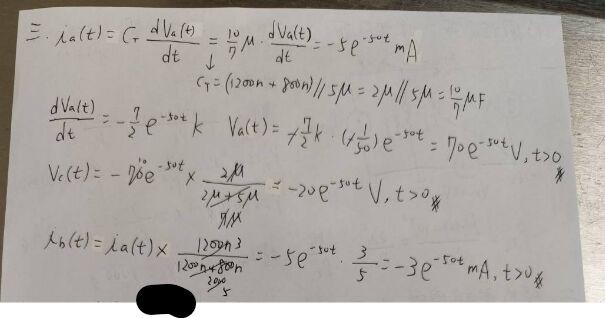 三. ia(t) = C_T dVa(t)/dt = 10/7 μ · dVa(t)/dt = -5e^-50t mA
↓
C_T = (1200n + 800n) // 5μ = 2μ // 5μ = 10/7 μF
dVa(t)/dt = -7/2 e^-50t k Va(t) = -7/2 k · (-1/50) e^-50t = 70e^-50t V, t>0
Vc(t) = -70e^-50t × 2μ/(2μ+5μ) = -20e^-50t V, t>0
10
7μ
ib(t) = ia(t) × 1200n/(1200n+800n) = -5e^-50t · 3/5 = -3e^-50t mA, t>0
3
2000
5